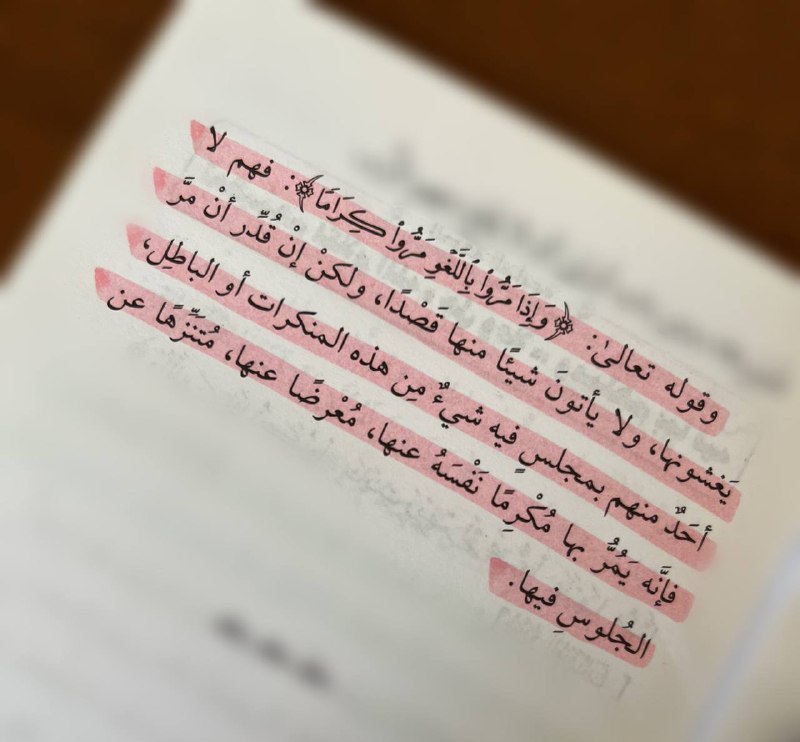 وقوله تعالىٰ: ﴿وَإِذَا مَرُّوا۟ بِٱللَّغْوِ مَرُّوا۟ كِرَامًا﴾: فهم لا
يَغشونها، ولا يأتونَ شيئًا منها قَصْدًا، ولكنْ إنْ قُدِّر أنْ مرَّ
أحَدٌ منهم بمجلسٍ فيه شيءٌ مِن هذه المنكرات أو الباطِل،
فإنَّه يَمُرُّ بها مُكْرِمًا نَفْسَهُ عنها، مُعْرِضًا عنها، مُتنَزِّهًا عن
الجُلوسِ فيها.